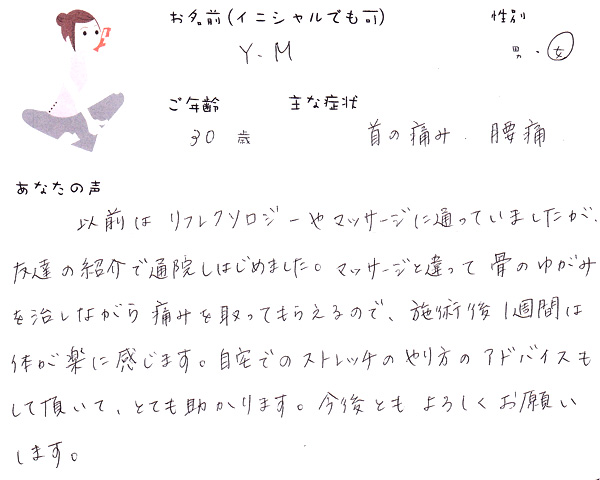 お名前(イニシャルでも可) 性別
Y.M 男・女
ご年齢 主な症状
30 歳 首の痛み. 腰痛
あなたの声
以前は リフレクソロジーやマッサージに通っていましたが、
友達の紹介で通院しはじめました。マッサージと違って 骨のゆがみ
を治しながら 痛みを取ってもらえるので、施術後 1週間は
体が楽に感じます。自宅でのストレッチのやり方のアドバイスも
して頂いて、とても助かります。今後とも よろしくお願い
します。